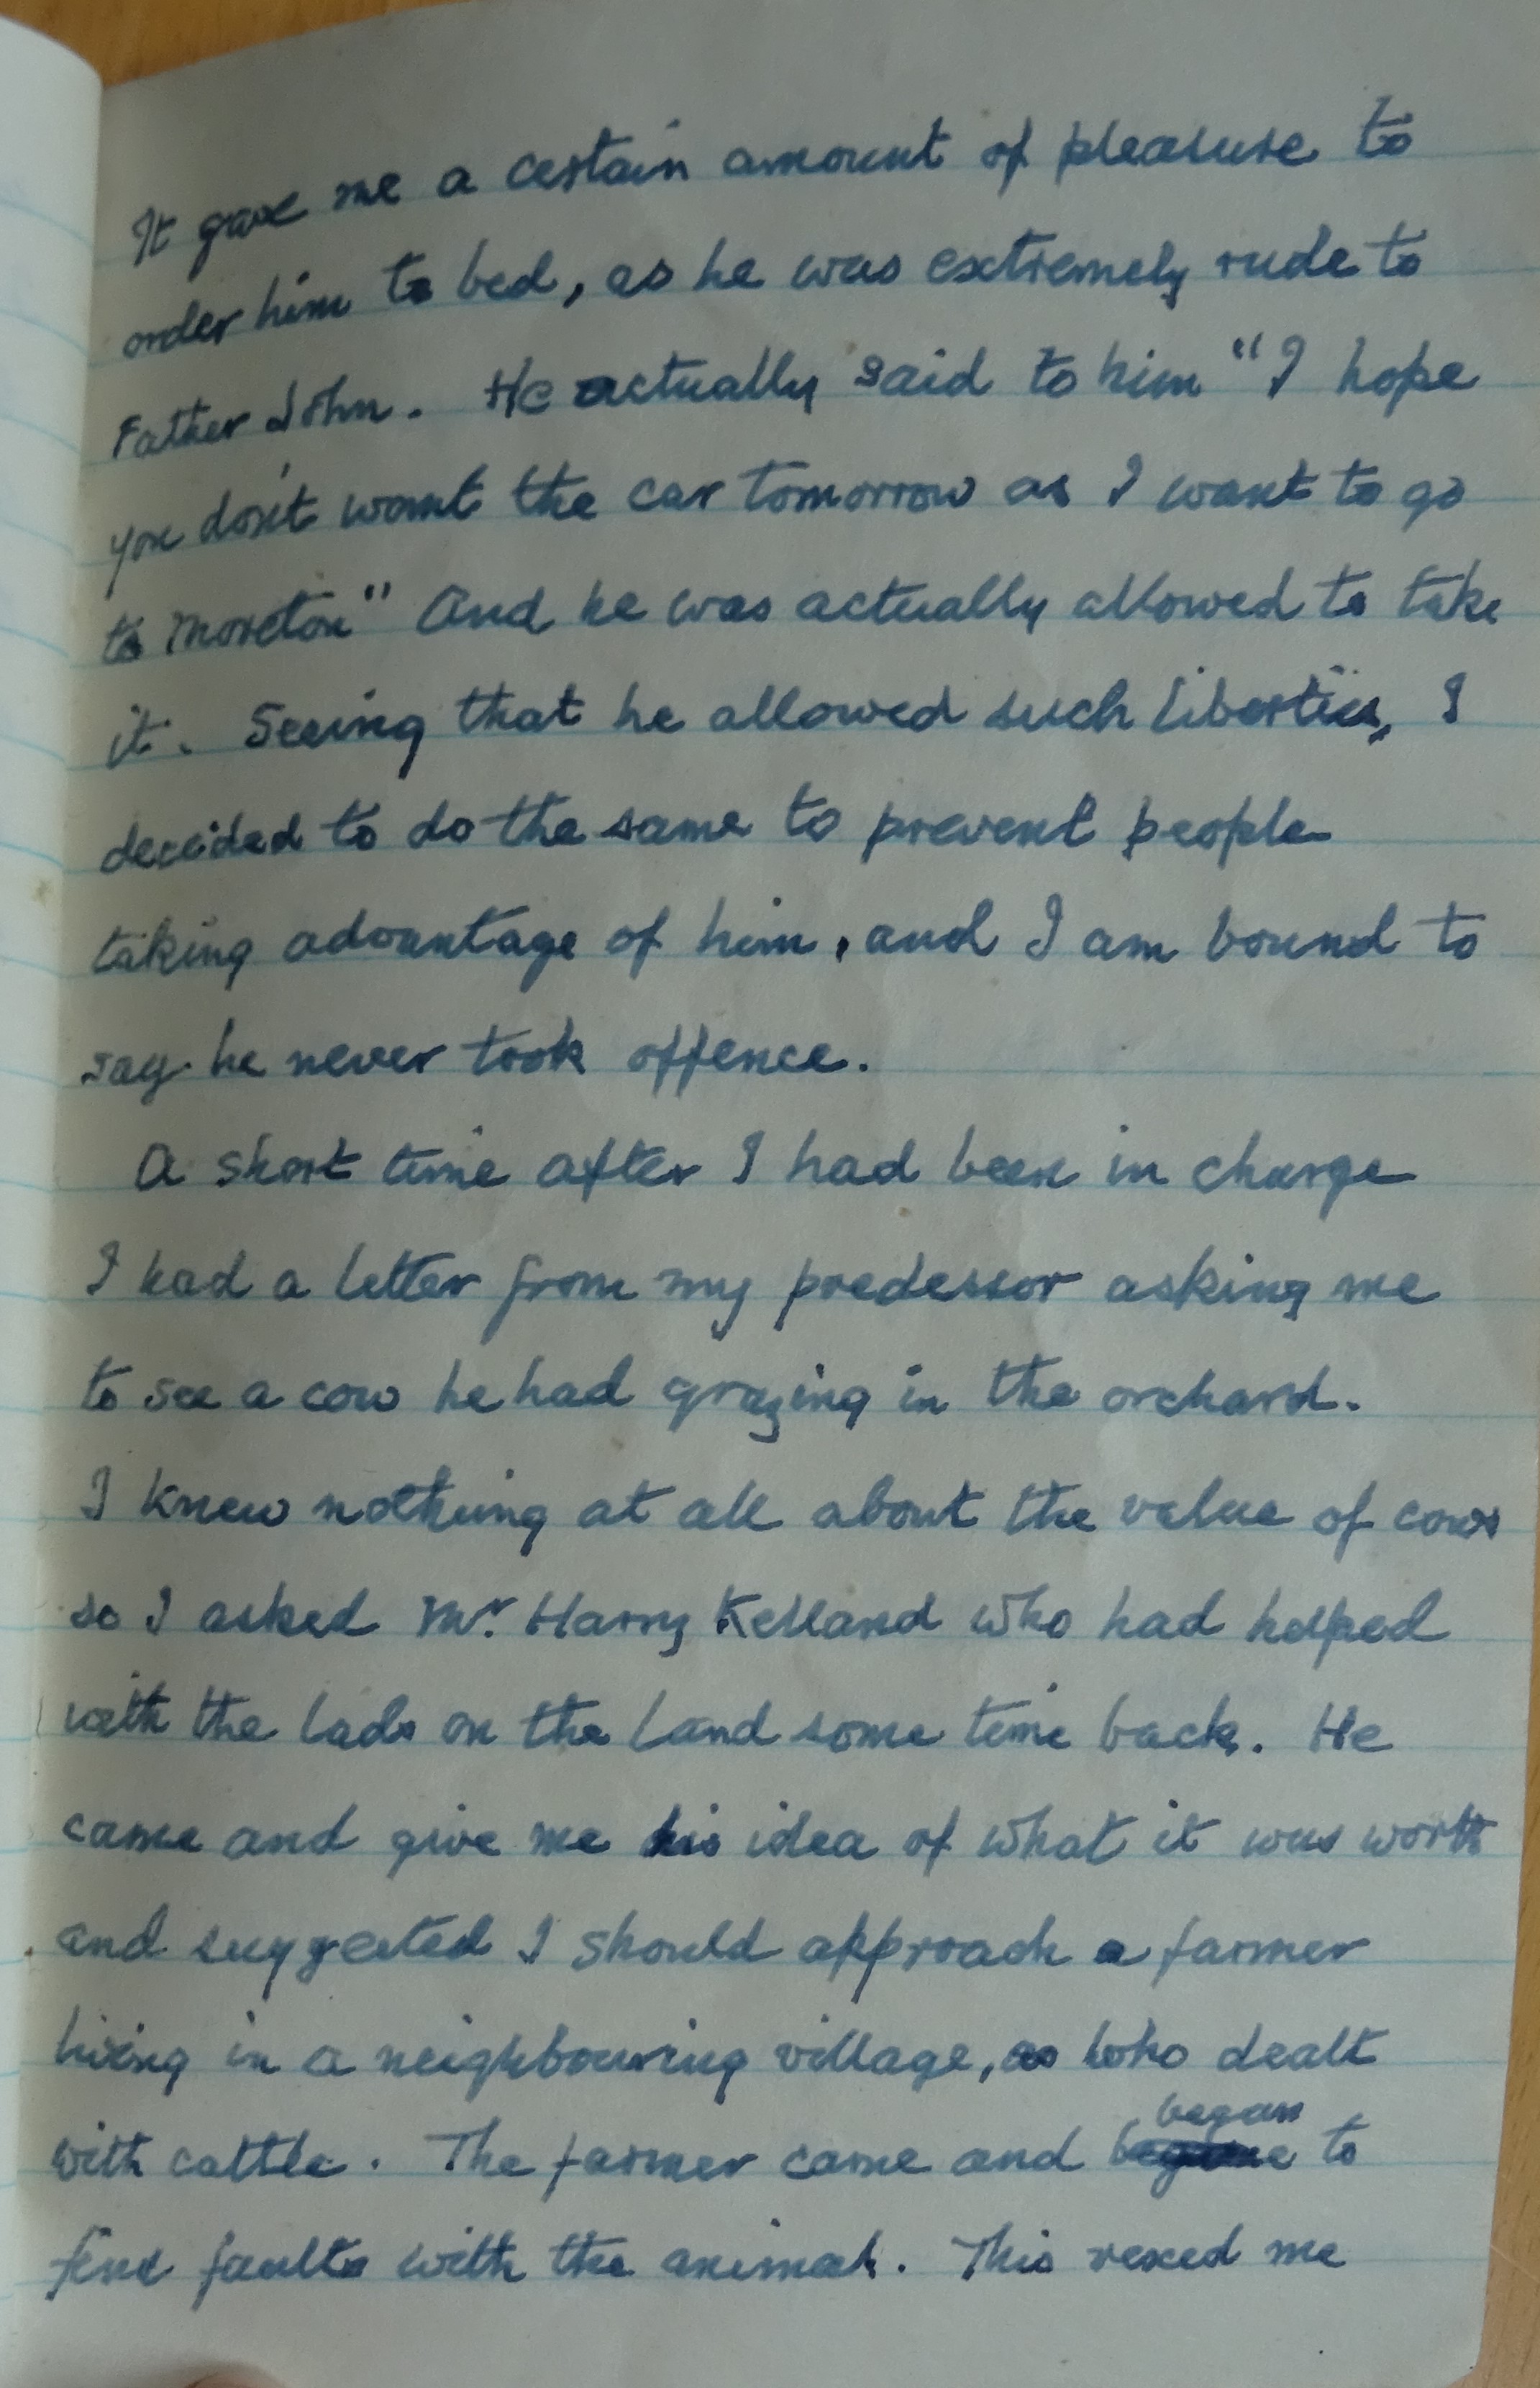 It gave me a certain amount of pleasure to
order him to bed, as he was extremely rude to
Father John. He actually said to him "I hope
you don't want the car tomorrow as I want to go
to Moreton" And he was actually allowed to take
it. Seeing that he allowed such liberties, I
decided to do the same to prevent people
taking advantage of him, and I am bound to
say he never took offence.
A short time after I had been in charge
I had a letter from my predessor asking me
to see a cow he had grazing in the orchard.
I knew nothing at all about the value of cows
so I asked Mr. Harry Kelland who had helped
with the lads on the land some time back. He
came and give me his idea of what it was worth
and suggested I should approach a farmer
living in a neighbouring village, as who dealt
with cattle. The farmer came and began to
find faults with the animal. This vexed me